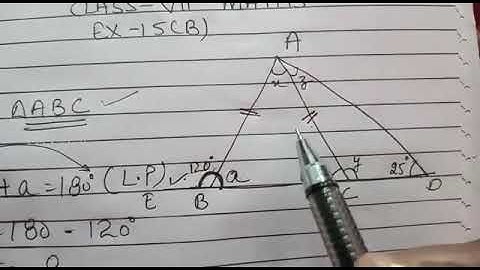 CLASS-VII MATHS
EX-15(B)
A
x z
△ABC ✓
+ a = 180° (L.P) ✓ 120° a y 25°
E B C D
= 180 - 120°